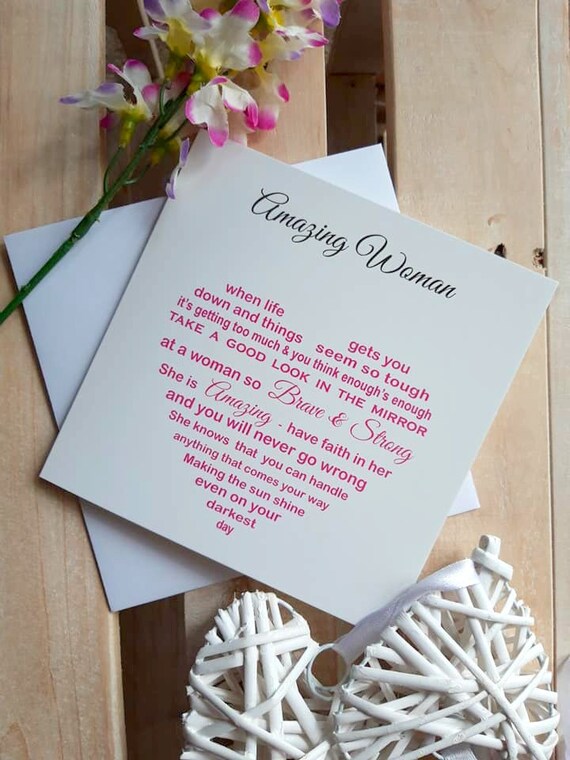 Amazing Woman
when life gets you
down and things seem so tough
it's getting too much & you think enough's enough
TAKE A GOOD LOOK IN THE MIRROR
at a woman so Brave & Strong
She is Amazing - have faith in her
and you will never go wrong
She knows that you can handle
anything that comes your way
Making the sun shine
even on your
darkest
day